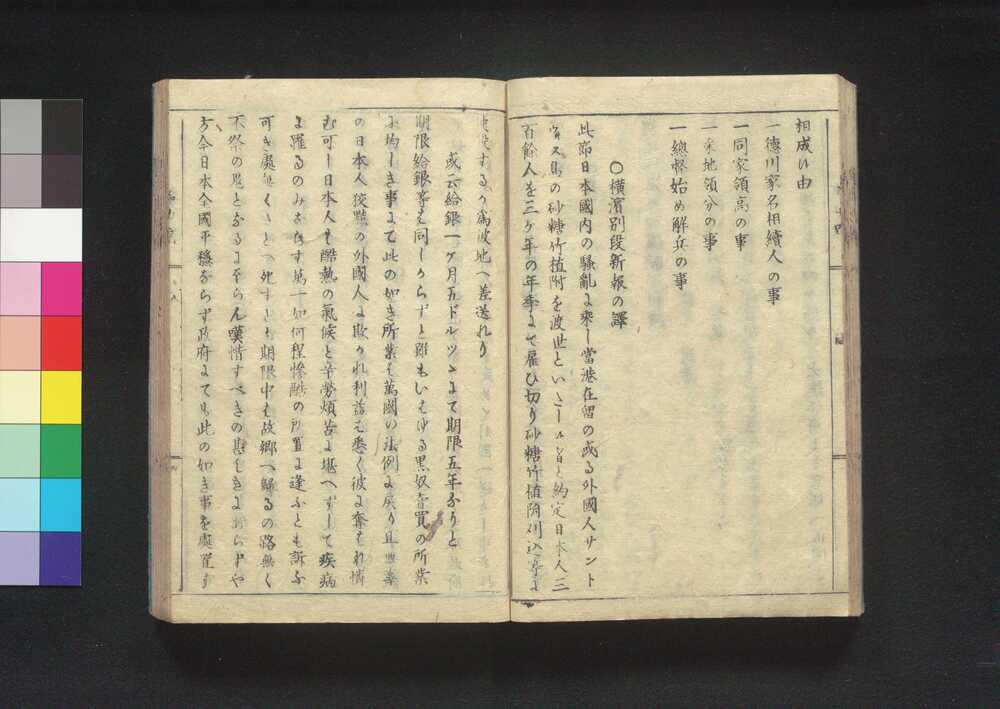 相成候由
一德川家名相續人の事
一同家領高の事
一采地領分の事
一總督始め解兵の事
〇橫濱別段新報の譯
此節日本國內の騷亂に乘し當港在留の或る外國人サント
の砂糖竹植附を渡世といたし候者と約定日本人三
百餘人を三ケ年の年季にて雇ひ切り砂糖竹植附刈込等に
使役するの爲彼地へ差送れり
或云給銀一ケ月五ドルツヽにて期限五年なりと
期限給銀等は同しからずと雖もいはゆる黑奴賣買の所業
に均しき事にて此の如き所業は萬國の法例に戾り且無辜
の日本人狡黠の外國人に欺かれ利益は悉く彼に奪はれ憐
む可し日本人は酷熱の氣候と辛勞煩苦に堪へずして疾病
に罹るのみならす萬一如何程慘酷の所置に逢ふとも訴ふ
可き處無くたとへ死すとも期限中は故鄕へ歸るの路無く
不祭の鬼となるに至らん嘆惜すべきの甚しきにあらずや
方今日本全國平穩ならず政府にても此の如き事を處置す